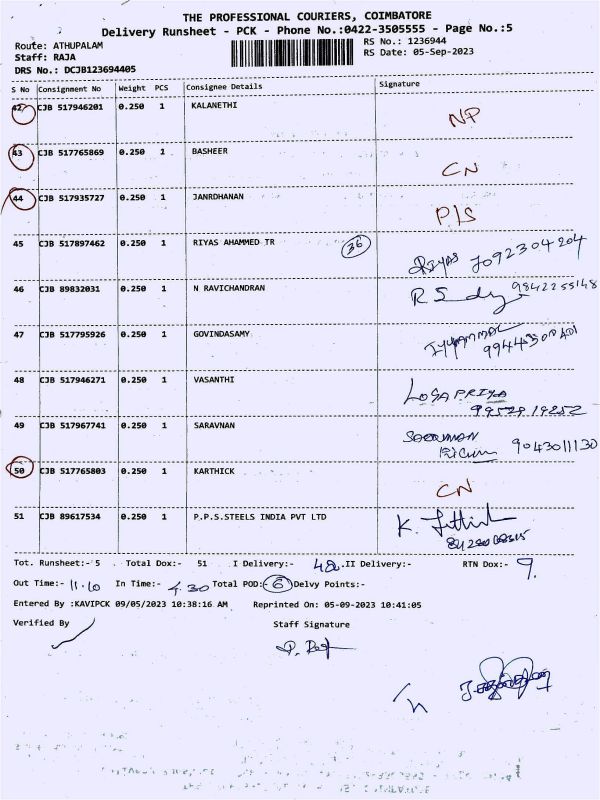 THE PROFESSIONAL COURIERS, COIMBATORE
Delivery Runsheet - PCK - Phone No.:0422-3505555 - Page No.:5
Route: ATHUPALAM RS No.: 1236944
Staff: RAJA RS Date: 05-Sep-2023
DRS No.: DCJB123694405
S No Consignment No Weight PCS Consignee Details Signature
42 CJB 517946201 0.250 1 KALANETHI NP
43 CJB 517765869 0.250 1 BASHEER CN
44 CJB 517935727 0.250 1 JANRDHANAN P/S
45 CJB 517897462 0.250 1 RIYAS AHAMMED TR 36 RIYAS 7092304204
46 CJB 89832031 0.250 1 N RAVICHANDRAN 9842255148
47 CJB 517795926 0.250 1 GOVINDASAMY
48 CJB 517946271 0.250 1 VASANTHI LOGAPRIYA
49 CJB 517967741 0.250 1 SARAVNAN 9043011130
50 CJB 517765803 0.250 1 KARTHICK CN
51 CJB 89617534 0.250 1 P.P.S.STEELS INDIA PVT LTD
Tot. Runsheet:- 5 Total Dox:- 51 I Delivery:- 42 .II Delivery:- RTN Dox:- 9.
Out Time:- 11.10 In Time:- 4.30 Total POD:- 6 Delvy Points:-
Entered By :KAVIPCK 09/05/2023 10:38:16 AM Reprinted On: 05-09-2023 10:41:05
Verified By Staff Signature